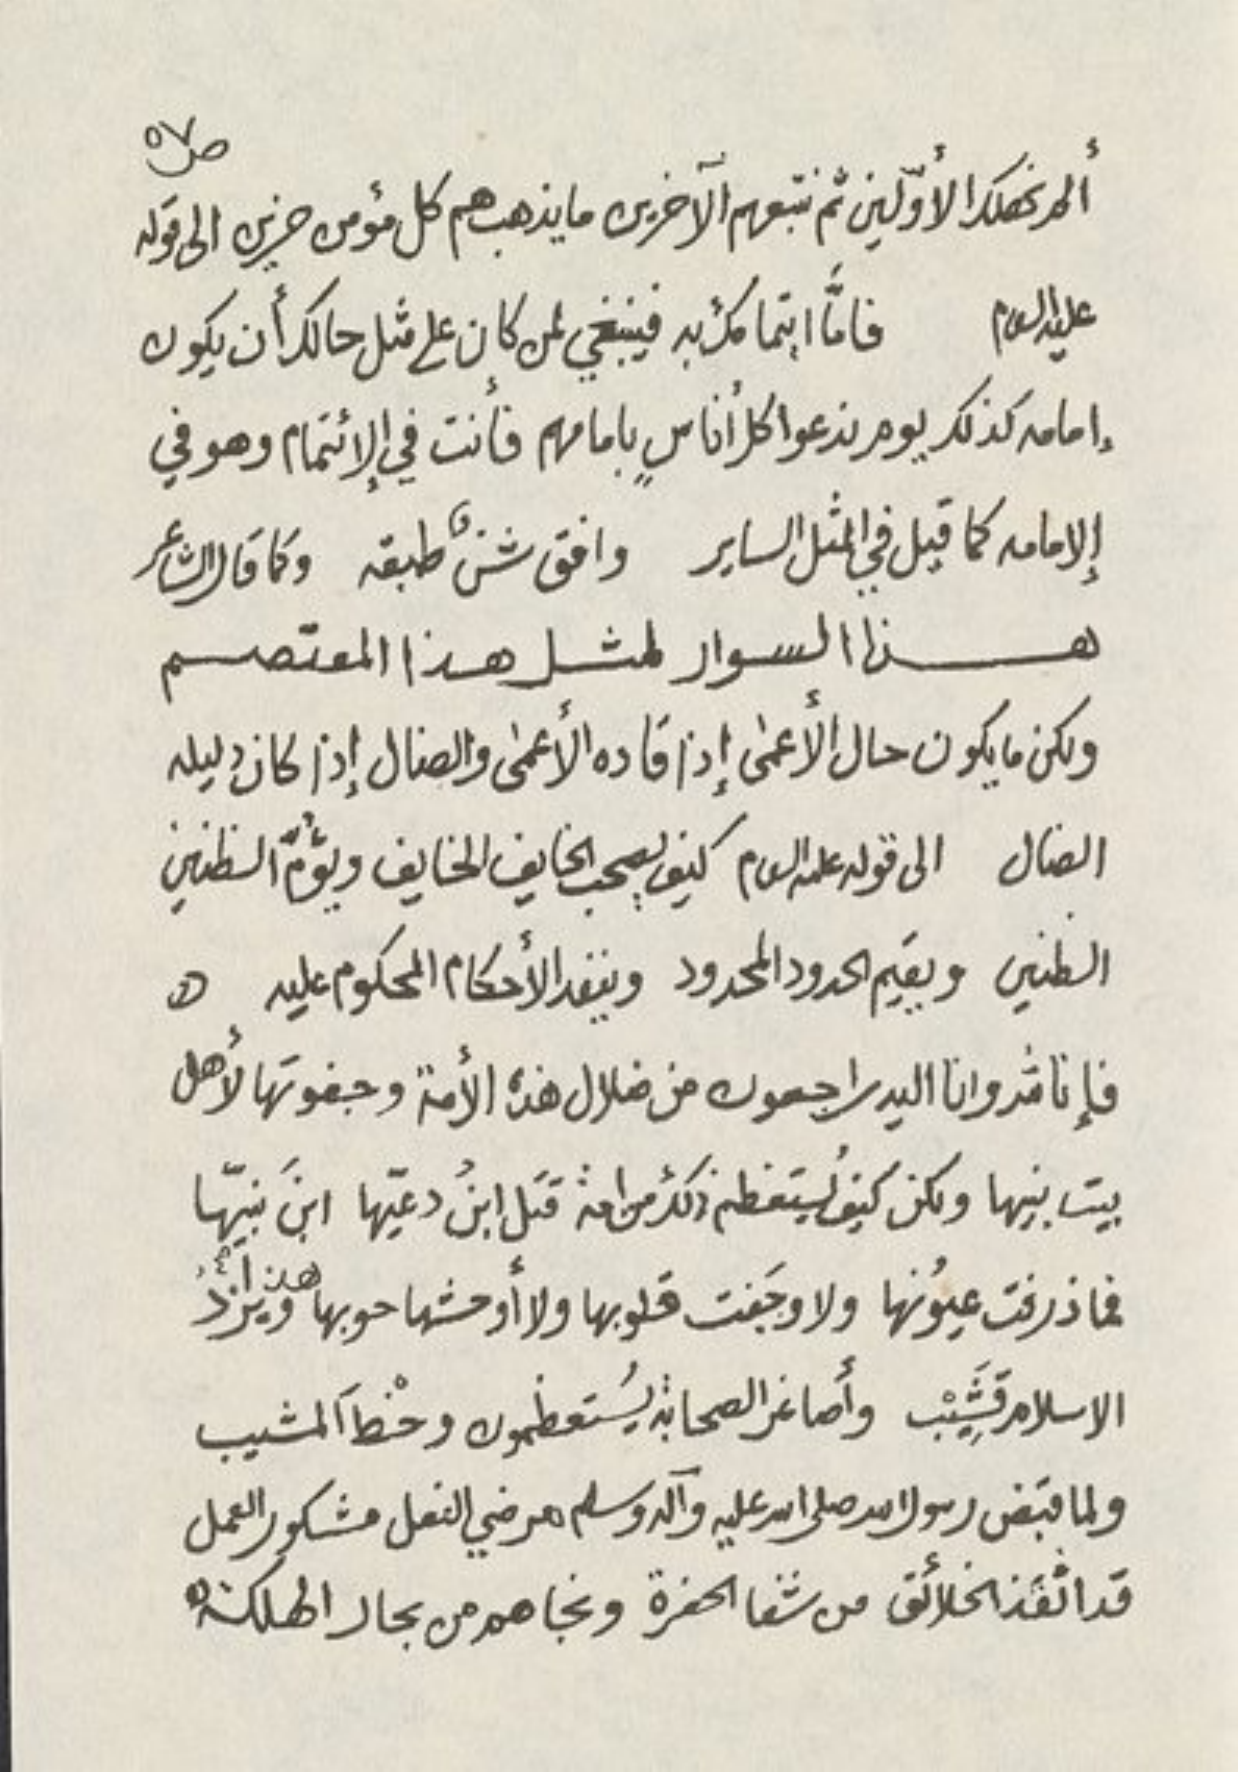 ص٥٧
ألم نهلك الأوّلين ثم نتبعهم الآخرين ما يذهب هم كل مؤمن حزين الى قوله
عليه السلام فامَّا ايتمامك به فينبغي لمن كان على مثل حالك أن يكون
إمامه كذلك يوم ندعوا كل أناسٍ بامامهم فأنت في الإئتمام وهو في
الإمامه كما قيل في المثل الساير وافق شن طبقه وكما قال الشاعر
هذا السوار لمثل هذا المعتصم
ولكن ما يكون حال الأعمى إذا قاده الأعمى والضال إذا كان دليله
الضال الى قوله عليه السلام كيف يصحب الخايف الخايف ويؤمّ الظنين
الظنين ويقيم الحدود المحدود وينفذ الأحكام المحكوم عليه
فإنا لله وانا اليه راجعون من ضلال هذه الأمة وجفوتها لأهل
بيت نبيها ولكن كيف يُستعظم ذلك من امة قتل ابنُ دعيّها ابنَ نبيّها
فما ذرفت عيُونها ولا وجَفت قلوبها ولا أوحشها حوبها هذا وبرْدُ
الاسلام قَشِيْب وأصاغر الصحابة يُستعظمون وخْطَ المشيب
ولما قبض رسول الله صلى الله عليه وآله وسلم مرضي الفعل مشكور العمل
قد انْقَذ الخلائق من شفا الحفرة ونجاهم من بحار الهلكة